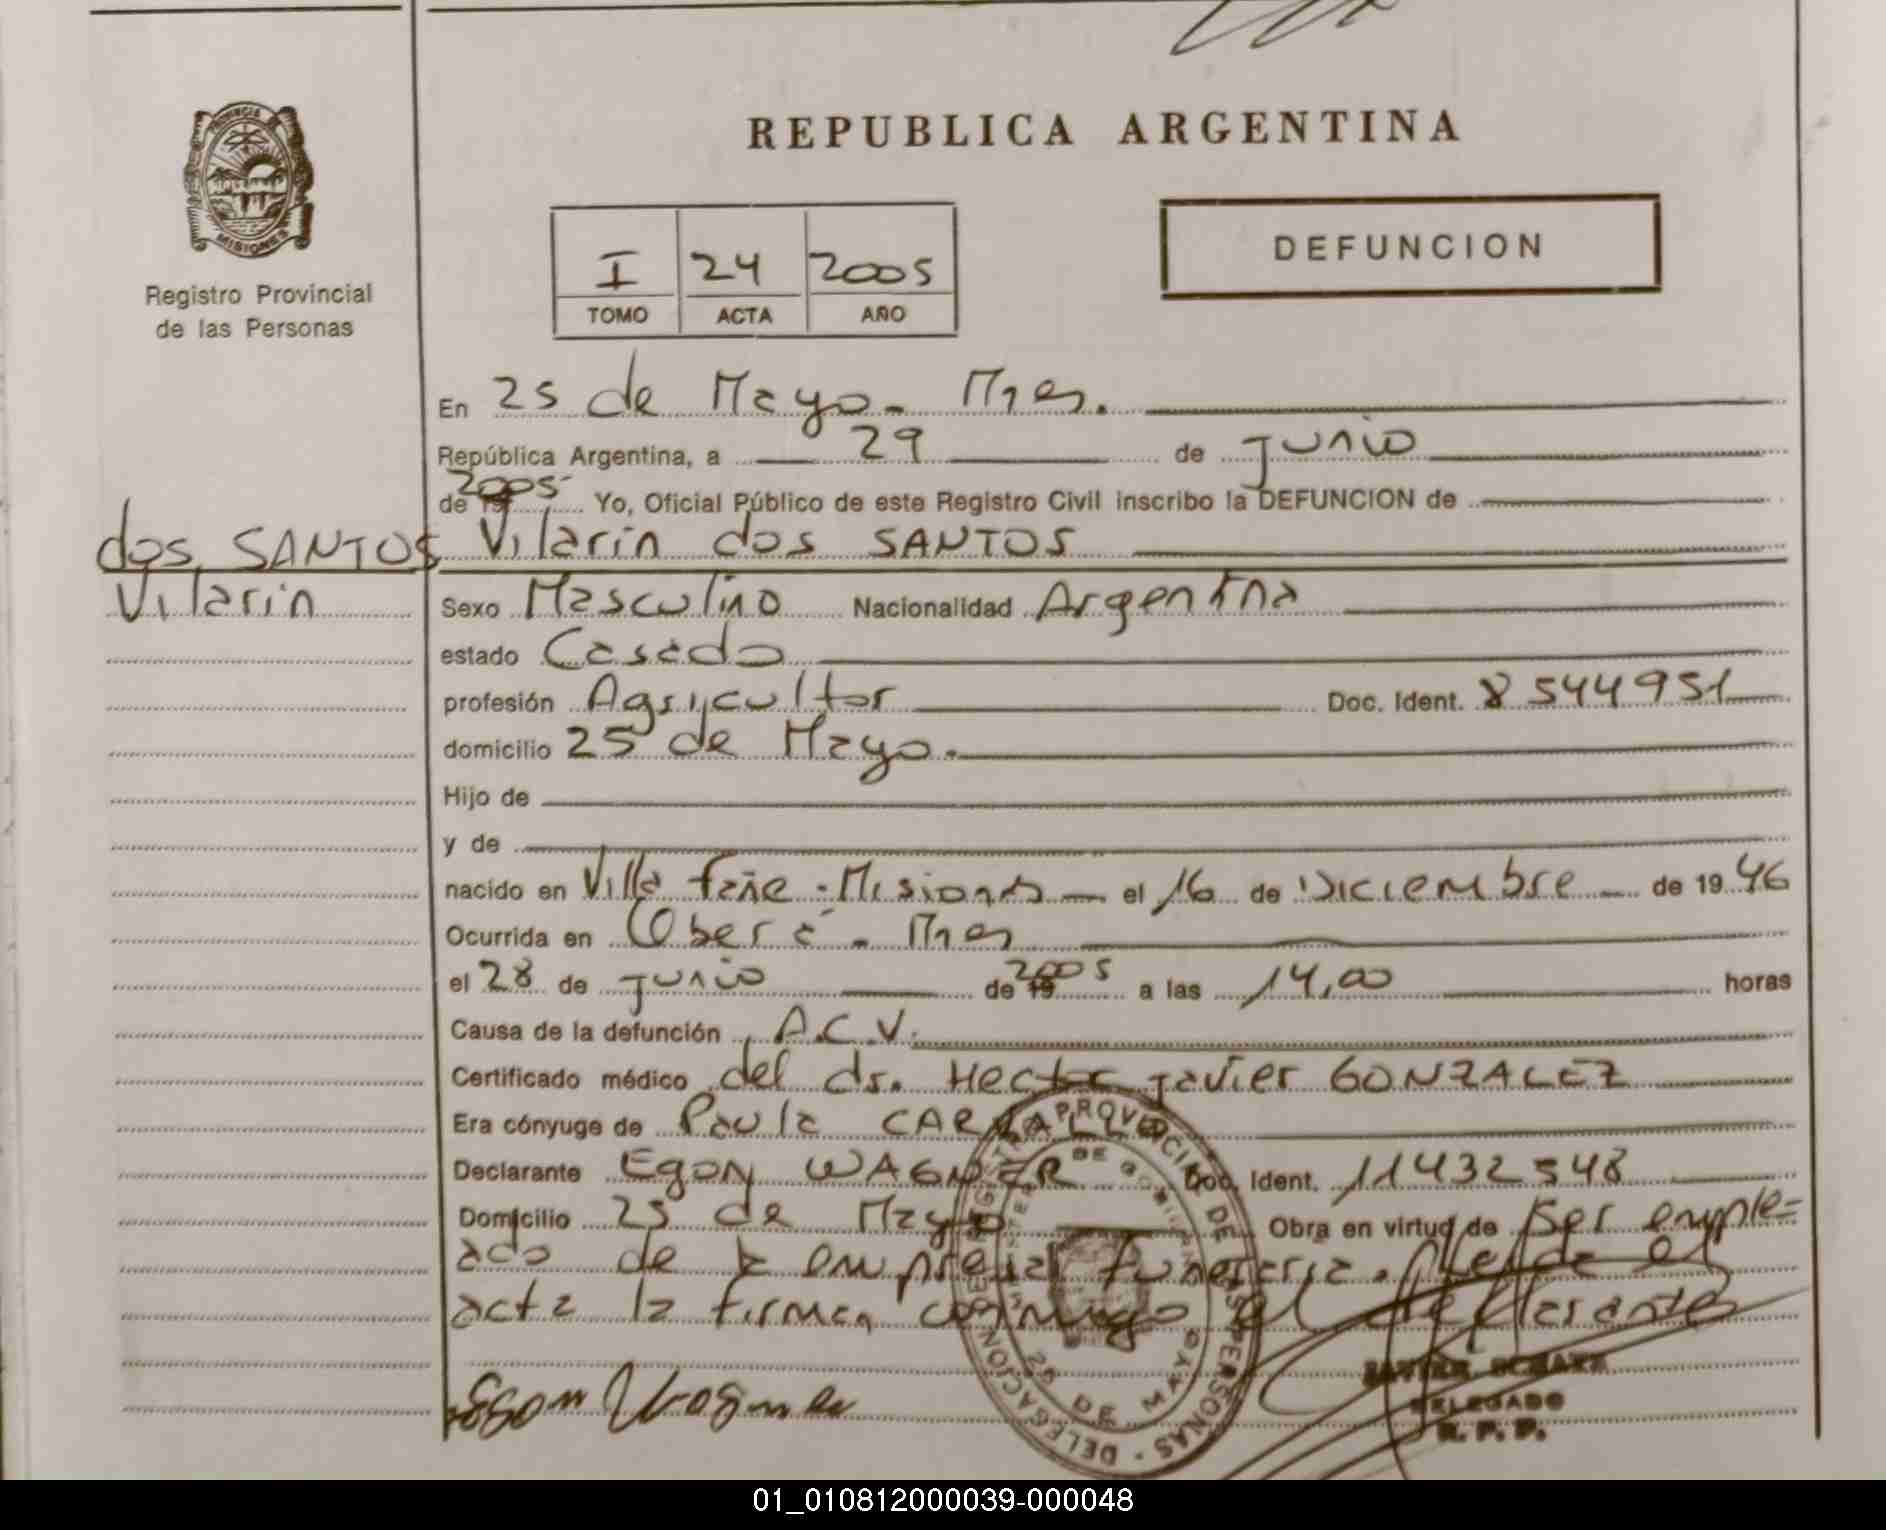 REPUBLICA ARGENTINA
PROVINCIA DE
MISIONES
Registro Provincial
de las Personas
I 24 2005
TOMO ACTA AÑO
DEFUNCION
En 25 de Mayo - Mnes.
República Argentina, a 29 de junio
de 19 2005 Yo, Oficial Público de este Registro Civil inscribo la DEFUNCION de
dos SANTOS Vilarin dos SANTOS
Vilarin
Sexo Masculino Nacionalidad Argentina
estado Casado
profesión Agricultor Doc. Ident. 8544951
domicilio 25 de Mayo.
Hijo de
y de
nacido en Villa fañe - Misiones el 16 de Diciembre de 1946
Ocurrida en Oberá - Mnes
el 28 de junio de 19 2005 a las 14,00 horas
Causa de la defunción A.C.V.
Certificado médico del dr. Hector javier GONZALEZ
Era cónyuge de Paula
Declarante Egon WAGNER Doc. Ident. 11432548
Domicilio 25 de Mayo Obra en virtud de Ser emple=
ado de la empresa funeraria. Leida el
acta la firman conmigo el declarante
Egon Wagner
DELEGADO
R. P. P.
DELEGACION 25 DE MAYO
01_010812000039-000048